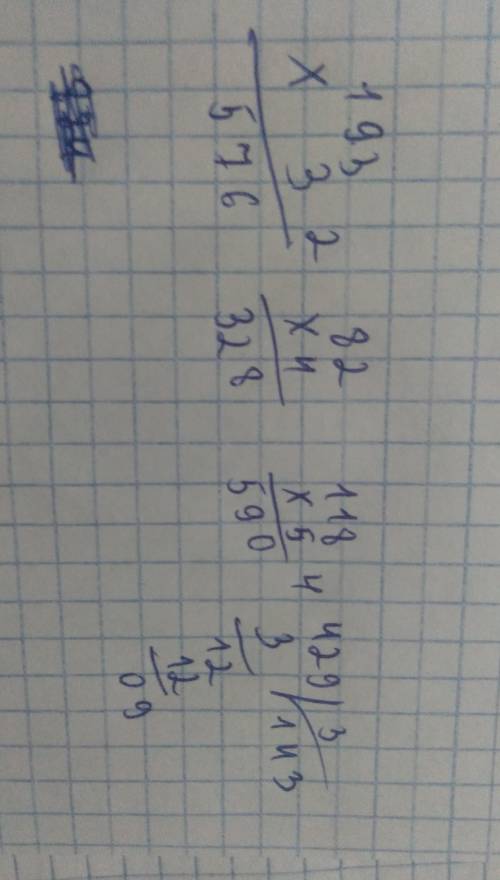 193
x 3
576
2
82
x 4
328
118
x 5
590
4
429 3
3 143
12
12
09